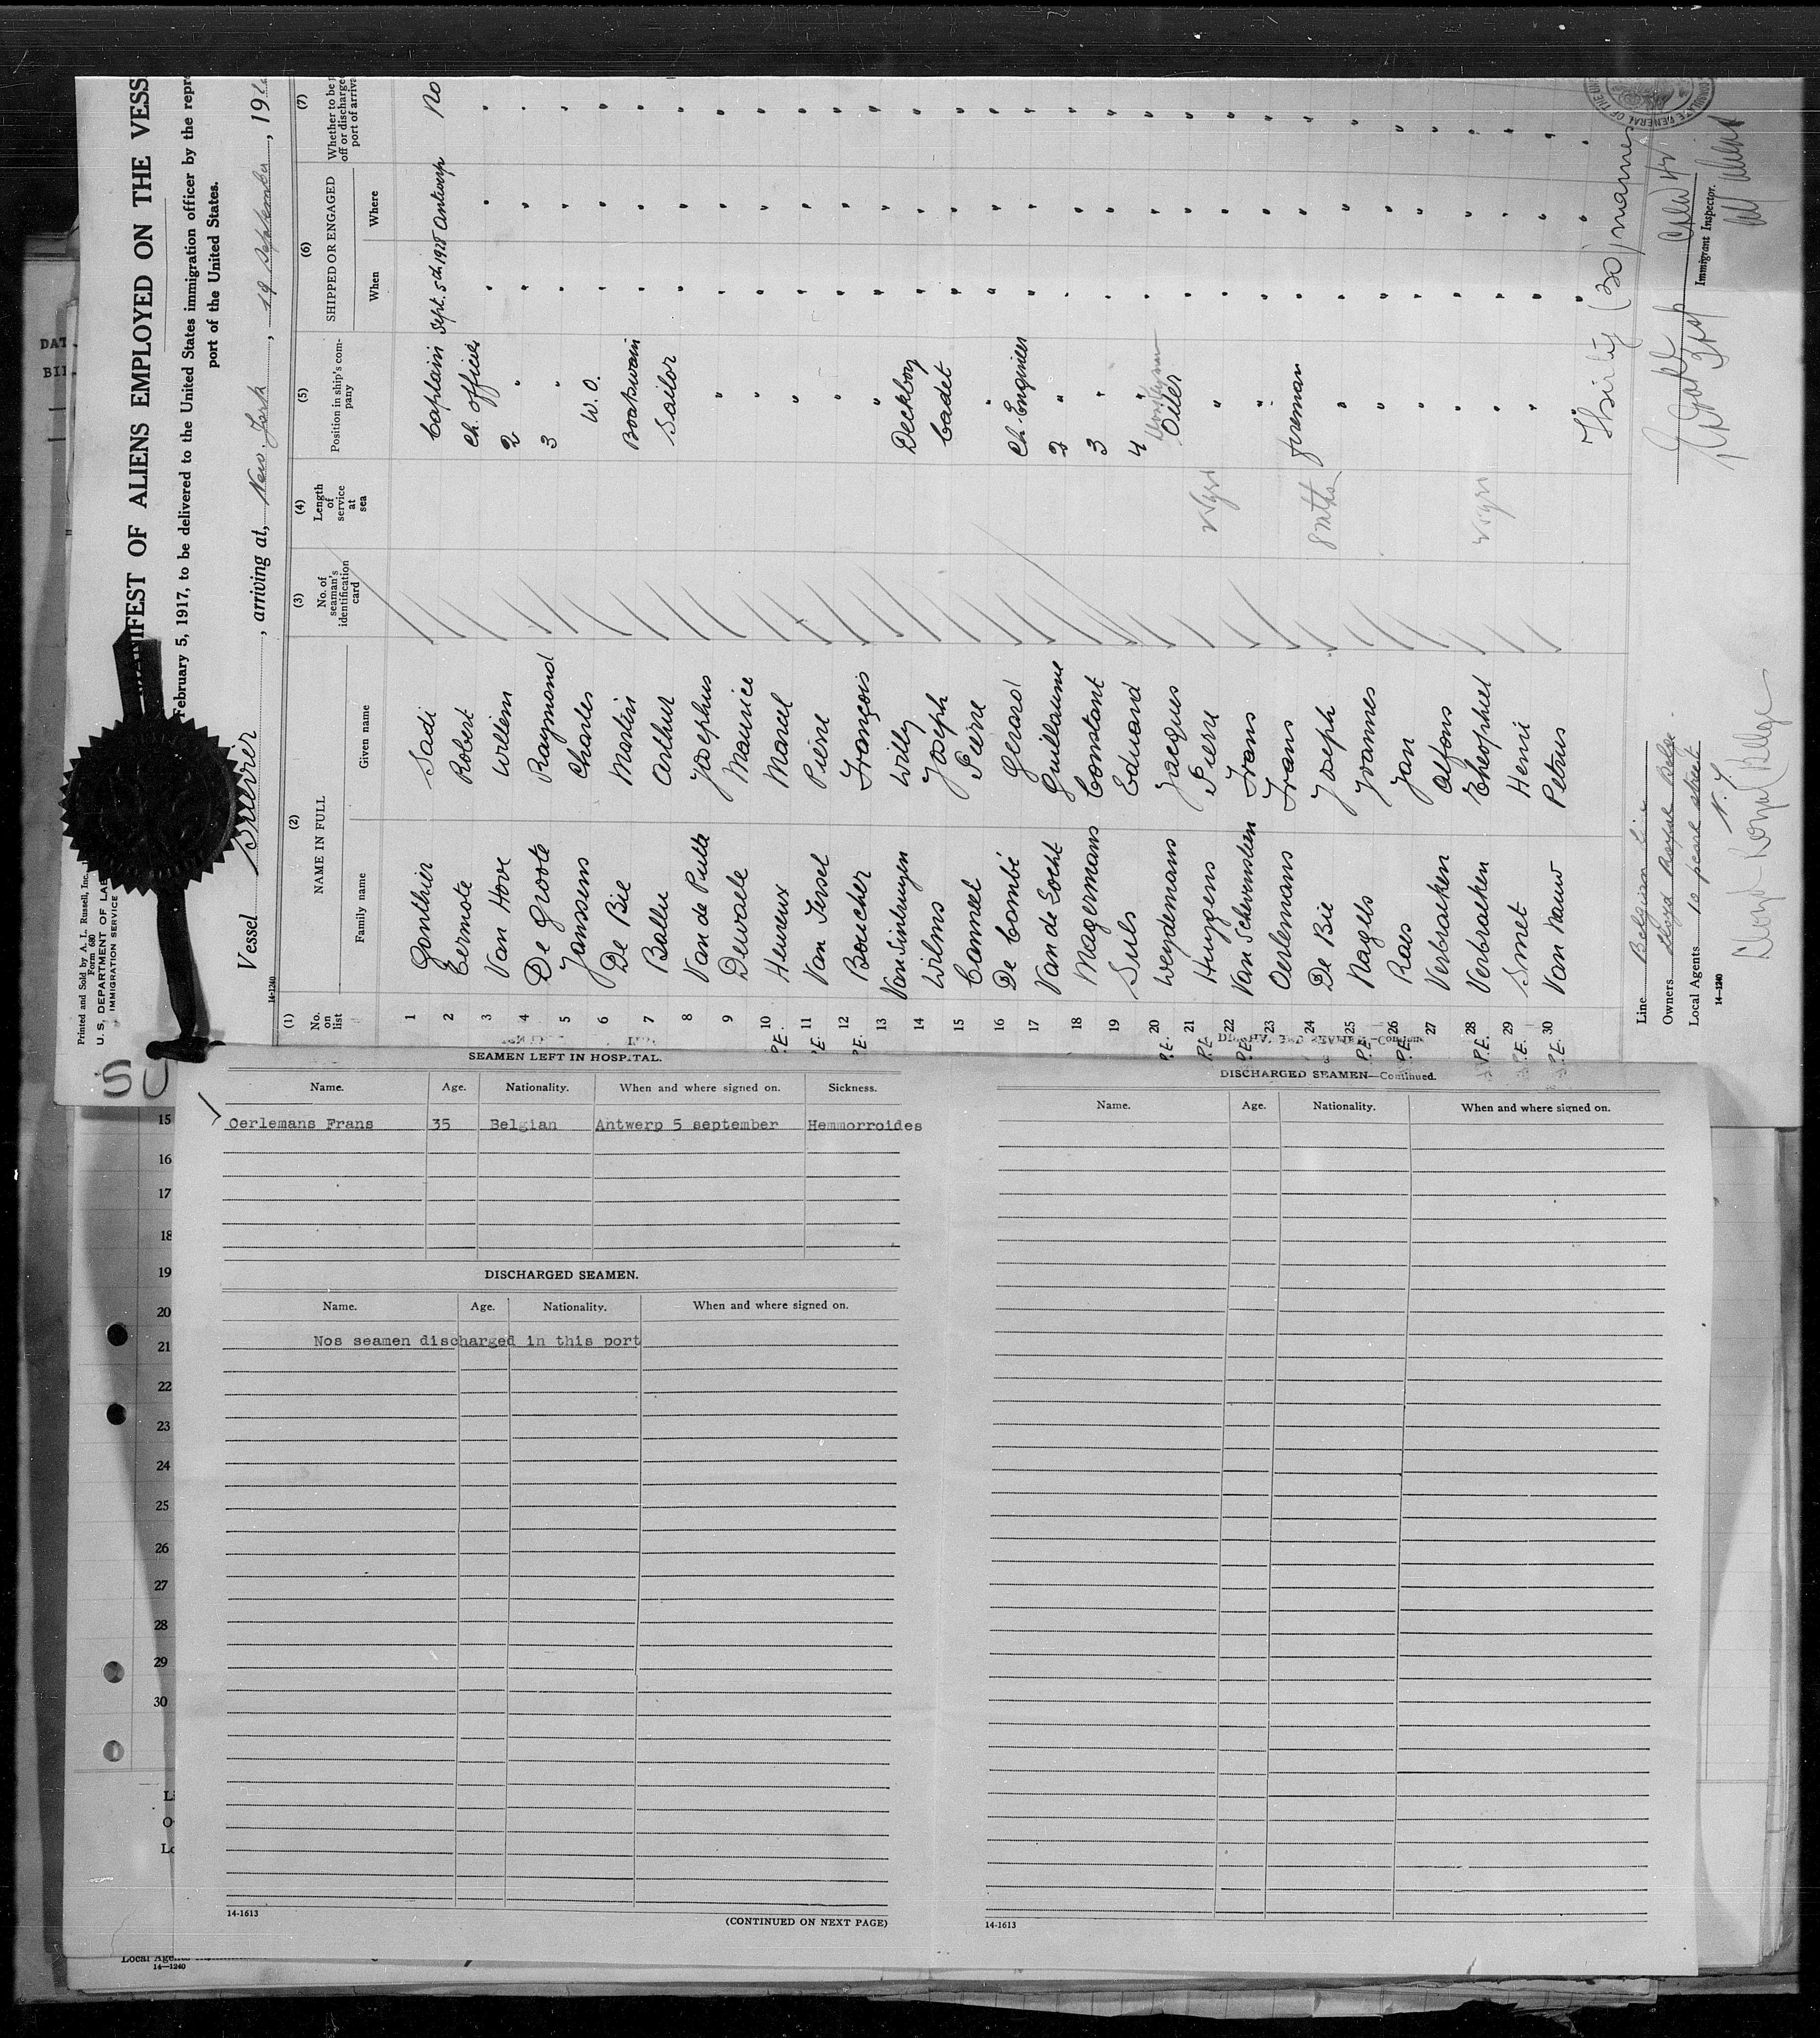 Printed and Sold by A. L. Russell, Inc.
Form 680
U. S. DEPARTMENT OF LAB
IMMIGRATION SERVICE
MANIFEST OF ALIENS EMPLOYED ON THE VESS
February 5, 1917, to be delivered to the United States immigration officer by the repre
port of the United States.
Vessel , arriving at, New York , 19 September , 19
14-1240
(1) (2) (3) (4) (5) (6) (7)
No. on list NAME IN FULL No. of seaman's identification card Length of service at sea Position in ship's company SHIPPED OR ENGAGED Whether to be off or discharge port of arriva
Family name Given name When Where
1 Gonthier Sadi Captain Sept. 5th 1925 Antwerp No
2 Termote Robert Ch. Officier " " "
3 Van Hove Willem 2 " " " "
4 De Groote Raymond 3 " " " "
5 Janssens Charles W. O. " " "
6 De Bie Martin Boatswain " " "
7 Ballu Arthur Sailor " " "
8 Van de Putte Josephus " " " "
9 Dewaele Maurice " " " "
P.E. 10 Heureux Marcel " " " "
P.E. 11 Van Iersel Pierre " " " "
P.E. 12 Boucher François " " " "
13 Van Sintruyen Willy Deckboy " " "
14 Wilms Joseph Cadet " " "
15 Canneel Pierre " " " "
16 De Combé Gerard Ch. Engineer " " "
17 Van de Locht Guillaume 2 " " " "
18 Magermans Constant 3 " " " "
19 Suls Eduard 4 " " " "
P.E. 20 Weydemans Jacques Oiler " " "
P.E. 21 Huygens Pierre " " " "
P.E. 22 Van Schevensteen Frans " " " "
23 Oerlemans Frans Fireman " " "
24 De Bie Joseph 8 mths " " " "
P.E. 25 Nagels Joannes " " " "
P.E. 26 Raes Jan " " " "
27 Verbraeken Alfons " " " "
P.E. 28 Verbraeken Theophiel " " " "
P.E. 29 Smet Henri " " " "
P.E. 30 Van Nauw Petrus " " " "
Thirty (30) names
Line Belgian Line
Owners Lloyd Royal Belge
Local Agents 10 pearl street
N. Y.
14-1240
Lloyd Royal Belge
Immigrant Inspector.
SEAMEN LEFT IN HOSPITAL.
Name. Age. Nationality. When and where signed on. Sickness.
Oerlemans Frans 35 Belgian Antwerp 5 september Hemmorroides
DISCHARGED SEAMEN.
Name. Age. Nationality. When and where signed on.
Nos seamen discharged in this port
14-1613
(CONTINUED ON NEXT PAGE)
DISCHARGED SEAMEN—Continued.
Name. Age. Nationality. When and where signed on.
14-1613
15
16
17
18
19
20
21
22
23
24
25
26
27
28
29
30
Local Age
14-1240